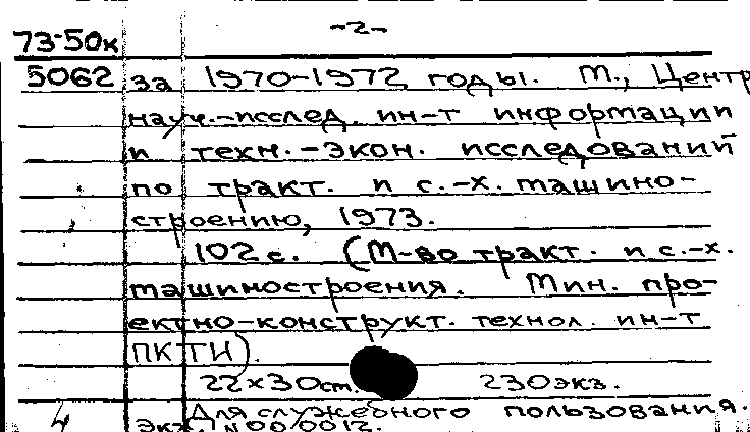 -2-
73-50к
5062 за 1970-1972 годы. М., Центр
науч.-исслед. ин-т информации
и техн.-экон. исследований
по тракт. и с.-х. машино-
строению, 1973.
102 с. (М-во тракт. и с.-х.
машиностроения. Мин. про-
ектно-конструкт. технол. ин-т
ПКТИ).
22×30см. 230экз.
Для служебного пользования.
4 Экз. №00/0012.